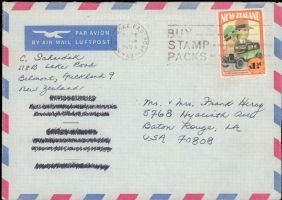 PAR AVION
BY AIR MAIL LUFTPOST
BUY
STAMP
PACKS
NEW ZEALAND
C.
118 Lake Road
Belmont, Auckland 9
New Zealand
Mr. + Mrs. Frank
5768 Hyacinth
Baton Rouge, LA
USA 70808